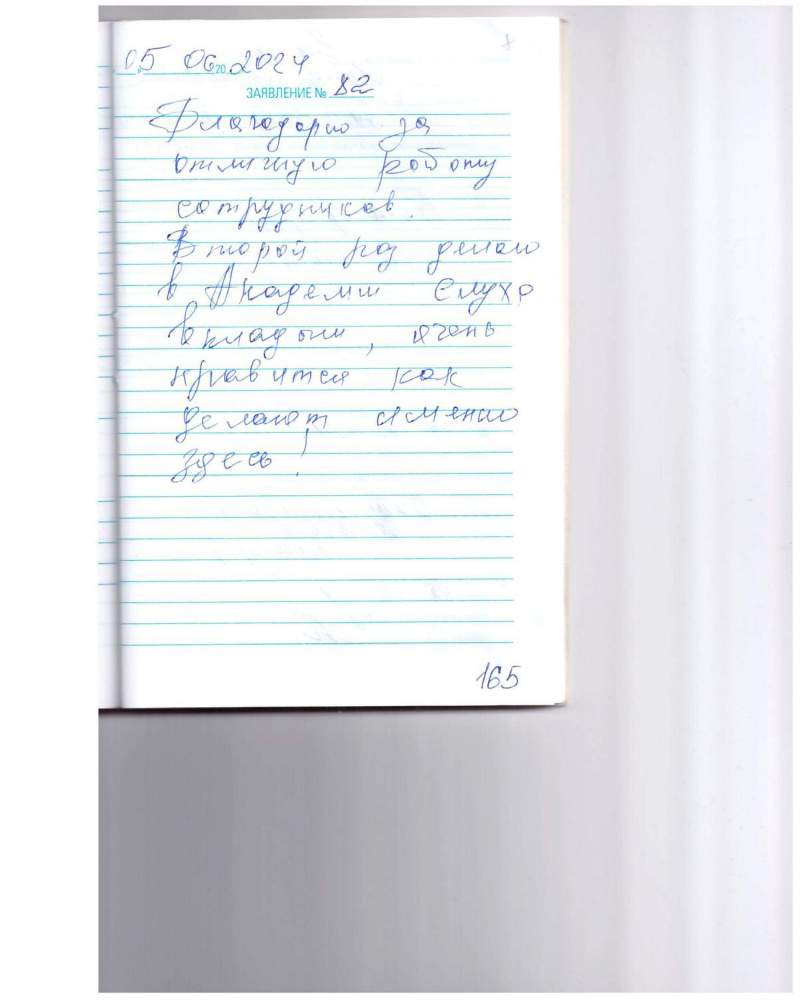 05 06 20 2024
ЗАЯВЛЕНИЕ № 82
Благодарю за
отличную работу
сотрудников.
Второй раз делаю
в Академии Слуха
вкладыши, очень
нравится как
делают именно
здесь!
165